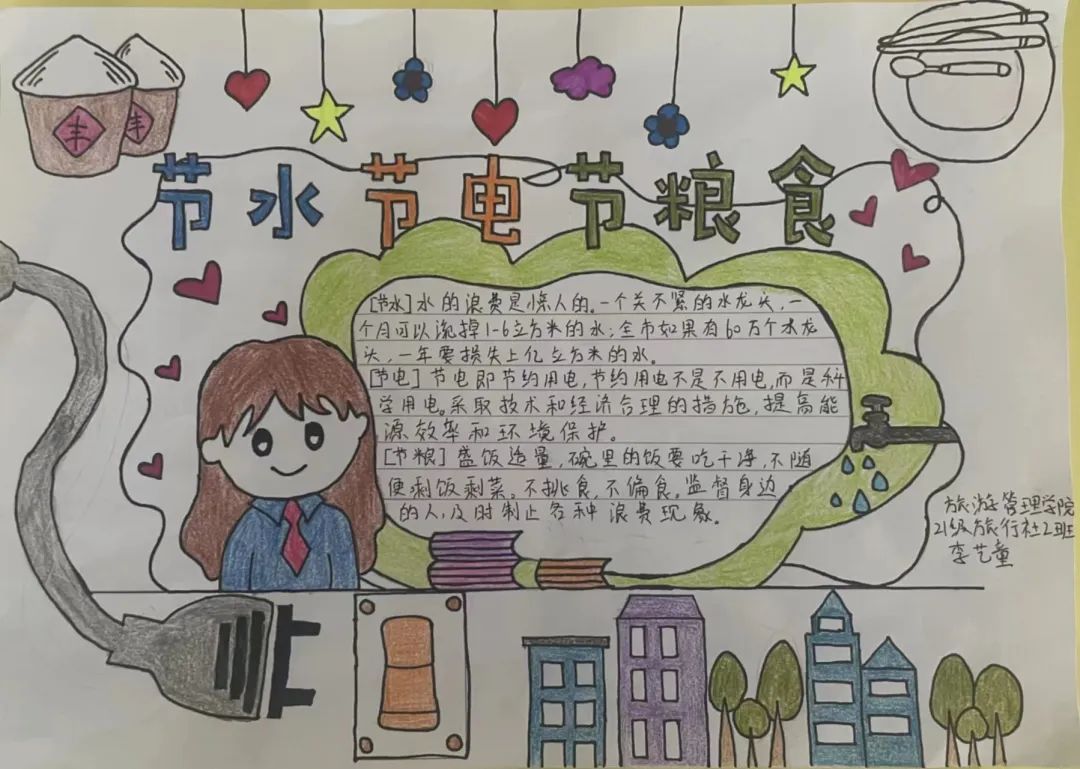 丰
丰
节水节电节粮食
[节水]水的浪费是惊人的。一个关不紧的水龙头,一
个月可以流掉1-6立方米的水;全市如果有60万个水龙
头,一年要损失上亿立方米的水。
[节电]节电即节约用电,节约用电不是不用电,而是科
学用电。采取技术和经济合理的措施,提高能
源效率和环境保护。
[节粮]盛饭适量,碗里的饭要吃干净,不随
便剩饭剩菜。不挑食,不偏食。监督身边
的人,及时制止各种浪费现象。
旅游管理学院
21级旅行社2班
李艺童